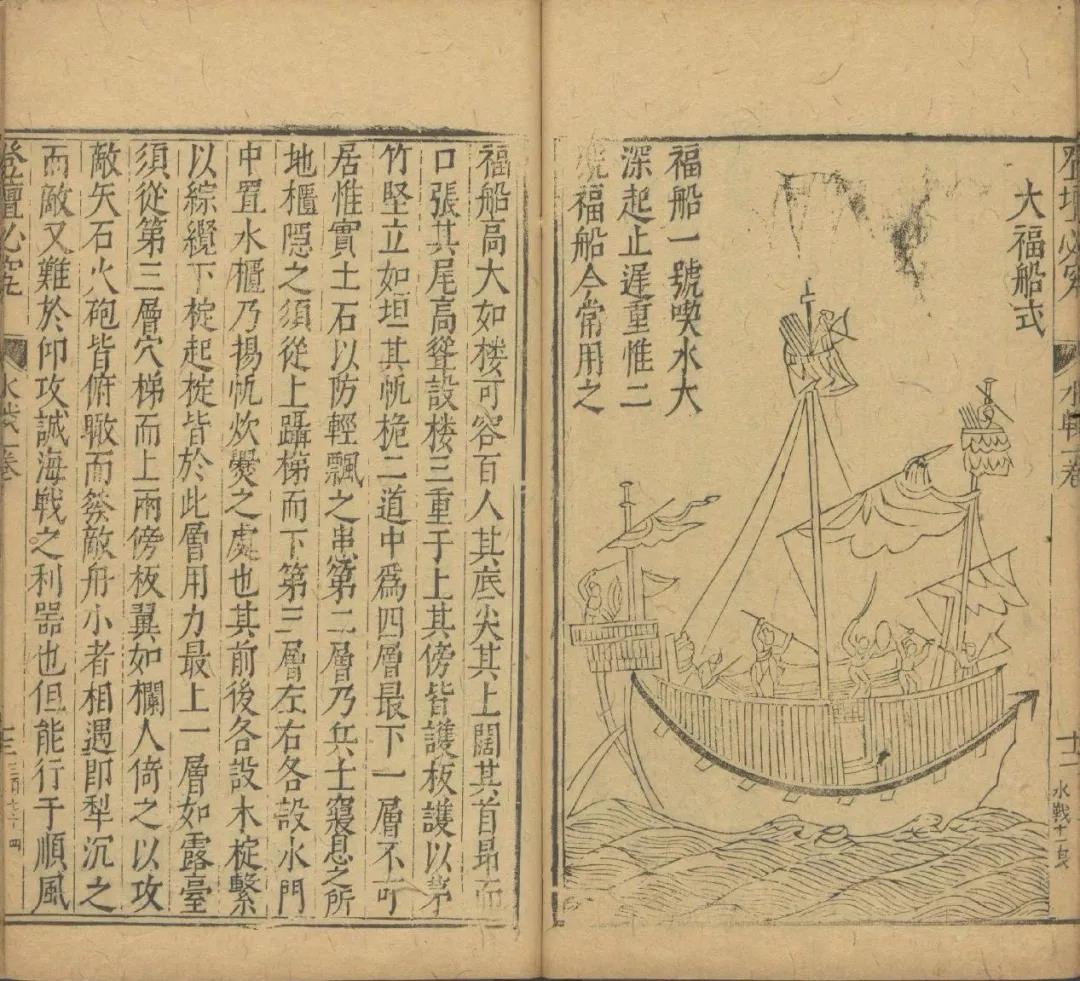 登壇必究
水戰一卷
十二
水戰十二頁
大福船式
福船一號喫水大
深起止遲重惟二
號福船今常用之
福船高大如楼可容百人其底尖其上闊其首昂而
口張其尾高聳設楼三重于上其傍皆護板護以茅
竹堅立如垣其帆桅二道中為四層最下一層不可
居惟實土石以防輕飄之患第二層乃兵士寢息之所
地櫃隱之須從上躡梯而下第三層左右各設水門
中置水櫃乃揚帆炊爨之處也其前後各設木椗繫
以綜纜下椗起椗皆於此層用力最上一層如露臺
須從第三層穴梯而上兩傍板翼如欄人倚之以攻
敵矢石火砲皆俯瞰而發敵舟小者相遇即犁沉之
而敵又難於仰攻誠海戰之利器也但能行于順風
登壇必究
水戰一卷
三百七十四